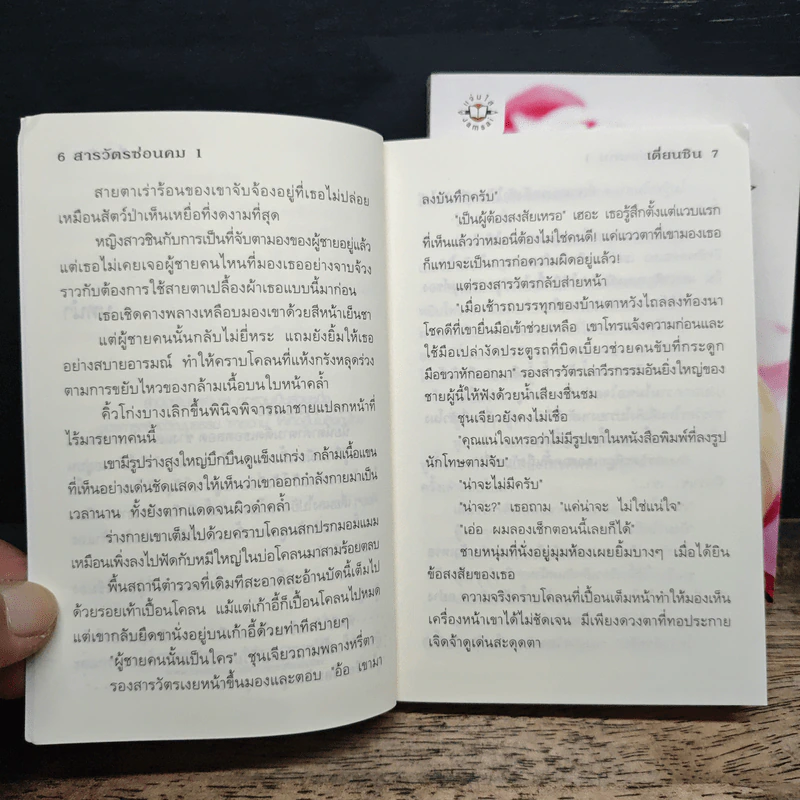 6 สารวัตรซ่อนคม 1
สายตาเร่าร้อนของเขาจับจ้องอยู่ที่เธอไม่ปล่อย
เหมือนสัตว์ป่าเห็นเหยื่อที่งดงามที่สุด
หญิงสาวชินกับการเป็นที่จับตามองของผู้ชายอยู่แล้ว
แต่เธอไม่เคยเจอผู้ชายคนไหนที่มองเธออย่างจาบจ้วง
ราวกับต้องการใช้สายตาเปลื้องผ้าเธอแบบนี้มาก่อน
เธอเชิดคางพลางเหลือบมองเขาด้วยสีหน้าเย็นชา
แต่ผู้ชายคนนั้นกลับไม่ยี่หระ แถมยังยิ้มให้เธอ
อย่างสบายอารมณ์ ทำให้คราบโคลนที่แห้งกรังหลุดร่วง
ตามการขยับไหวของกล้ามเนื้อบนใบหน้าคล้ำ
คิ้วโก่งบางเลิกขึ้นพินิจพิจารณาชายแปลกหน้าที่
ไร้มารยาทคนนี้
เขามีรูปร่างสูงใหญ่บึกบึนดูแข็งแกร่ง กล้ามเนื้อแขน
ที่เห็นอย่างเด่นชัดแสดงให้เห็นว่าเขาออกกำลังกายมาเป็น
เวลานาน ทั้งยังตากแดดจนผิวดำคล้ำ
ร่างกายเขาเต็มไปด้วยคราบโคลนสกปรกมอมแมม
เหมือนเพิ่งลงไปฟัดกับหมีใหญ่ในบ่อโคลนมาสามร้อยตลบ
พื้นสถานีตำรวจที่เดิมทีสะอาดสะอ้านบัดนี้เต็มไป
ด้วยรอยเท้าเปื้อนโคลน แม้แต่เก้าอี้ก็เปื้อนโคลนไปหมด
แต่เขากลับยืดขานั่งอยู่บนเก้าอี้ด้วยท่าทีสบายๆ
"ผู้ชายคนนั้นเป็นใคร" ชุนเจียวถามพลางหรี่ตา
รองสารวัตรเงยหน้าขึ้นมองและตอบ "อ้อ เขามา
เตี่ยนซิน 7
ลงบันทึกครับ"
"เป็นผู้ต้องสงสัยเหรอ" เฮอะ เธอรู้สึกตั้งแต่แวบแรก
ที่เห็นแล้วว่าหมอนี่ต้องไม่ใช่คนดี! แค่แววตาที่เขามองเธอ
ก็แทบจะเป็นการก่อความผิดอยู่แล้ว!
แต่รองสารวัตรกลับส่ายหน้า
"เมื่อเช้ารถบรรทุกของบ้านตาหวังไถลลงท้องนา
โชคดีที่เขายื่นมือเข้าช่วยเหลือ เขาโทรแจ้งความก่อนและ
ใช้มือเปล่างัดประตูรถที่บิดเบี้ยวช่วยคนขับที่กระดูก
มือขวาหักออกมา" รองสารวัตรเล่าวีรกรรมอันยิ่งใหญ่ของ
ชายผู้นี้ให้ฟังด้วยน้ำเสียงชื่นชม
ชุนเจียวยังคงไม่เชื่อ
"คุณแน่ใจเหรอว่าไม่มีรูปเขาในหนังสือพิมพ์ที่ลงรูป
นักโทษตามจับ"
"น่าจะไม่มีครับ"
"น่าจะ?" เธอถาม "แค่น่าจะ ไม่ใช่แน่ใจ"
"เอ่อ ผมลองเช็กตอนนี้เลยก็ได้"
ชายหนุ่มที่นั่งอยู่มุมห้องเผยยิ้มบางๆ เมื่อได้ยิน
ข้อสงสัยของเธอ
ความจริงคราบโคลนที่เปื้อนเต็มหน้าทำให้มองเห็น
เครื่องหน้าเขาได้ไม่ชัดเจน มีเพียงดวงตาที่ทอประกาย
เจิดจ้าดูเด่นสะดุดตา